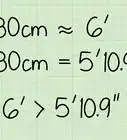 80cm ≈ 6'
80cm = 5'10.9
6' > 5'10.9"